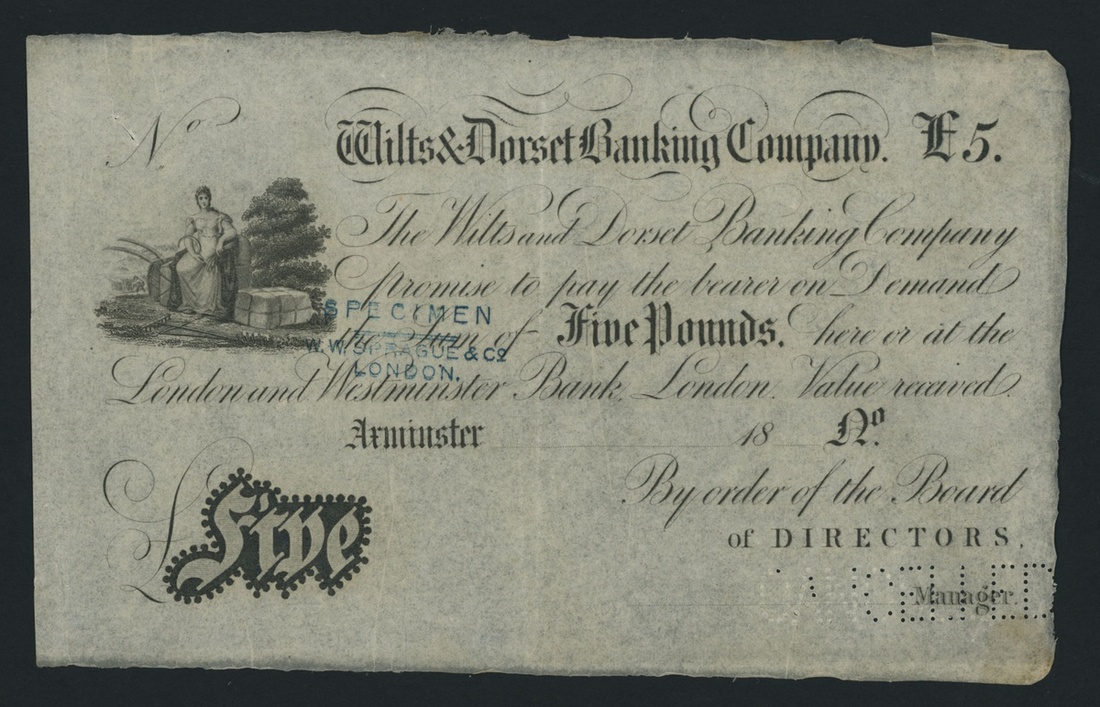 No
Wilts & Dorset Banking Company. £5.
The Wilts and Dorset Banking Company
promise to pay the bearer on Demand
SPECIMEN
the Sum of Five Pounds, here or at the
W. W. SPRAGUE & Co
LONDON.
London and Westminster Bank, London. Value received.
Axminster 18 No.
By order of the Board
of DIRECTORS.
£ Five
Manager.